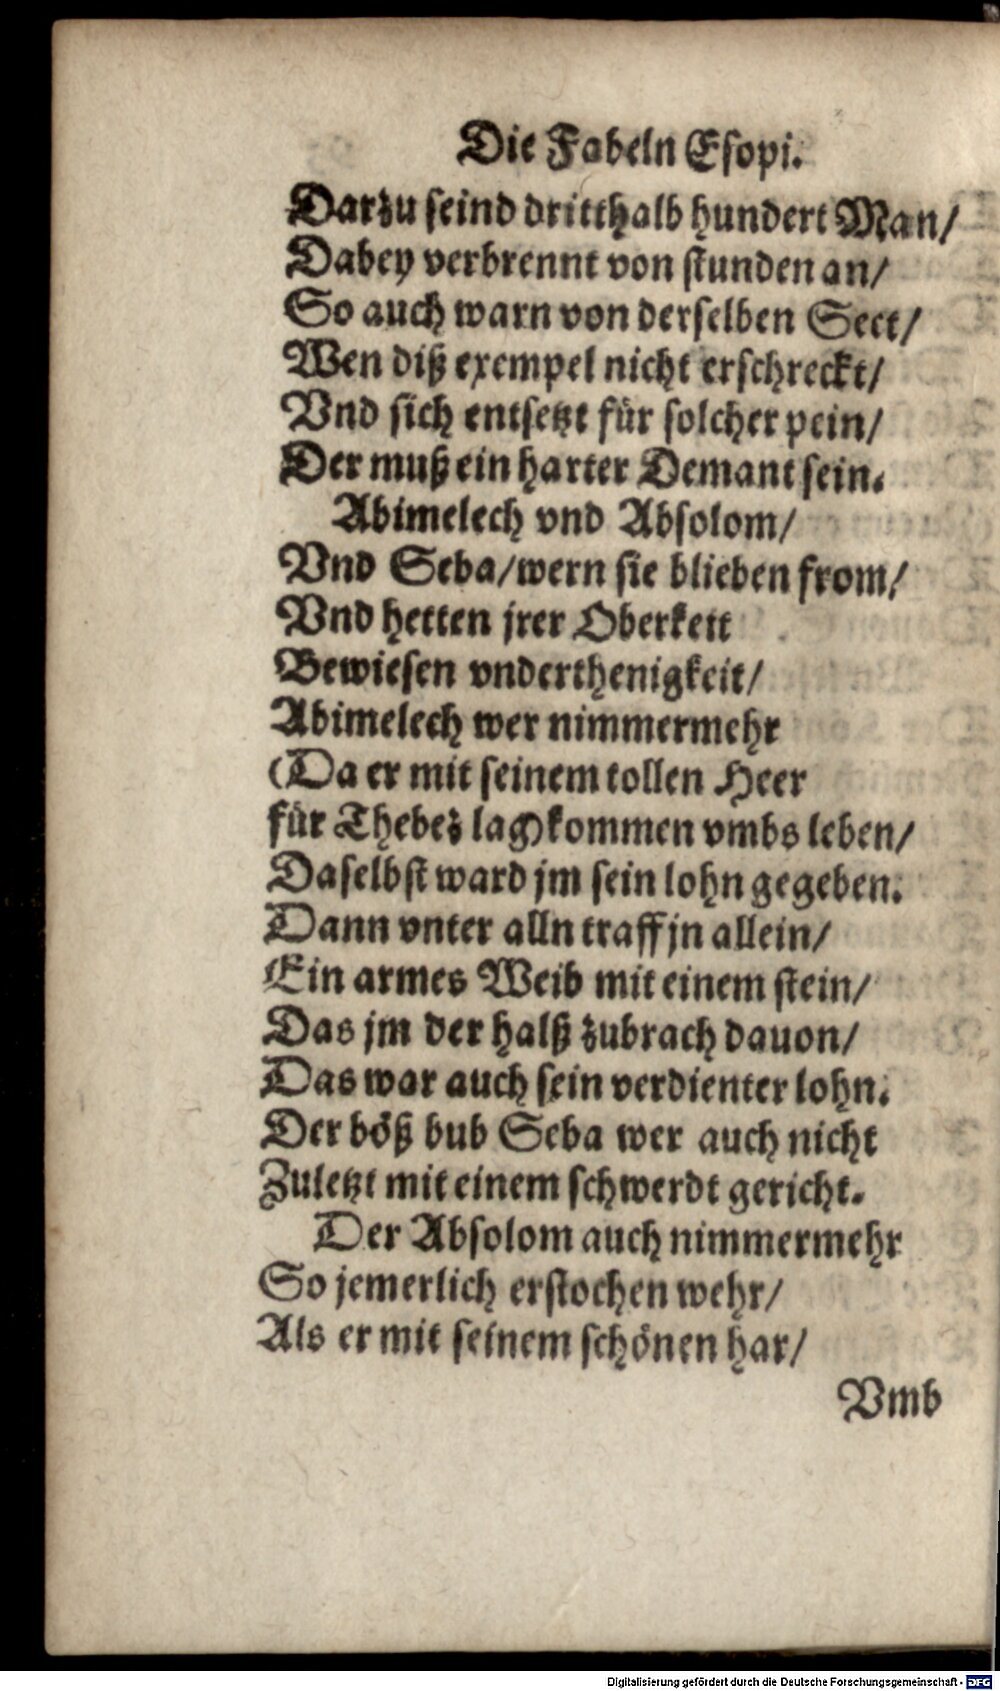 Die Fabeln Esopi.
Darzu seind dritthalb hundert Man/
Dabey verbrennt von stunden an/
So auch warn von derselben Sect/
Wen diß exempel nicht erschreckt/
Vnd sich entsetzt für solcher pein/
Der muß ein harter Demant sein.
Abimelech vnd Absolom/
Vnd Seba/wern sie blieben from/
Vnd hetten jrer Oberkeit
Bewiesen vnderthenigkeit/
Abimelech wer nimmermehr
(Da er mit seinem tollen Heer
für Thebez lag) kommen vmbs leben/
Daselbst ward jm sein lohn gegeben.
Dann vnter alln traff jn allein/
Ein armes Weib mit einem stein/
Das jm der halß zubrach dauon/
Das war auch sein verdienter lohn.
Der böß bub Seba wer auch nicht
Zuletzt mit einem schwerdt gericht.
Der Absolom auch nimmermehr
So jemerlich erstochen wehr/
Als er mit seinem schönen har/
Vmb
Digitalisierung gefördert durch die Deutsche Forschungsgemeinschaft - DFG